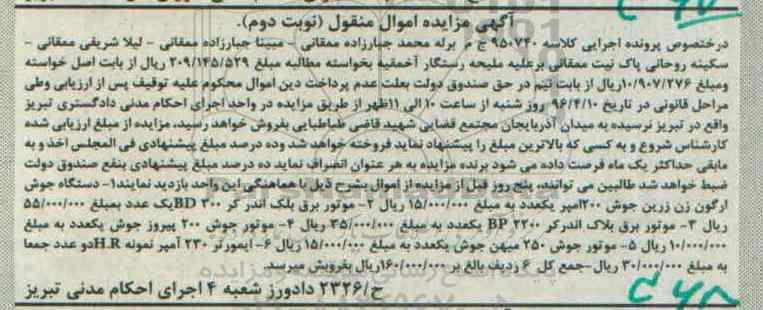 آگهی مزایده اموال منقول (نوبت دوم).
درخصوص پرونده اجرایی کلاسه ۹۵۰۷۴۰ ج م برله محمد جبارزاده ممقانی - مبینا جبارزاده ممقانی - لیلا شریفی ممقانی -
سکینه روحانی پاک نیت ممقانی برعلیه ملیحه رستگار آخمقیه بخواسته مطالبه مبلغ ۲۰۹/۱۴۵/۵۲۹ ریال از بابت اصل خواسته
ومبلغ ۱۰/۹۰۷/۲۷۶ریال از بابت نیم در حق صندوق دولت بعلت عدم پرداخت دین اموال محکوم علیه توقیف پس از ارزیابی وطی
مراحل قانونی در تاریخ ۹۶/۴/۱۰ روز شنبه از ساعت ۱۰ الی ۱۱ظهر از طریق مزایده در واحد اجرای احکام مدنی دادگستری تبریز
واقع در تبریز نرسیده به میدان آذربایجان مجتمع قضایی شهید قاضی طباطبایی بفروش خواهد رسید، مزایده از مبلغ ارزیابی شده
کارشناس شروع و به کسی که بالاترین مبلغ را پیشنهاد نماید فروخته خواهد شد وده درصد مبلغ پیشنهادی فی المجلس اخذ و به
مابقی حداکثر یک ماه فرصت داده می شود برنده مزایده به هر عنوان انصراف نماید ده درصد مبلغ پیشنهادی بنفع صندوق دولت
ضبط خواهد شد طالبین می توانند، پنج روز قبل از مزایده از اموال بشرح ذیل با هماهنگی این واحد بازدید نمایند۱- دستگاه جوش
ارگون زن زرین جوش ۲۰۰امپر یکعدد به مبلغ ۱۵/۰۰۰/۰۰۰ ریال ۲- موتور برق بلک اندر کر BD ۳۰۰یک عدد بمبلغ ۵۵/۰۰۰/۰۰۰
ریال ۳- موتور برق بلاک اندرکر BP ۲۲۰۰ یکعدد به مبلغ ۳۵/۰۰۰/۰۰۰ ریال ۴- موتور جوش ۲۰۰ پیروز جوش یکعدد به مبلغ
۱۰/۰۰۰/۰۰۰ ریال ۵- موتور جوش ۲۵۰ میهن جوش یکعدد به مبلغ ۱۵/۰۰۰/۰۰۰ ریال ۶- ایمورتر ۲۳۰ آمپر نمونه H.Rدو عدد جمعا
به مبلغ ۳۰/۰۰۰/۰۰۰ ریال -جمع کل ۶ ردیف بالغ بر ۱۶۰/۰۰۰/۰۰۰ریال بفروش میرسد
ح/۲۳۲۶ دادورز شعبه ۴ اجرای احکام مدنی تبریز